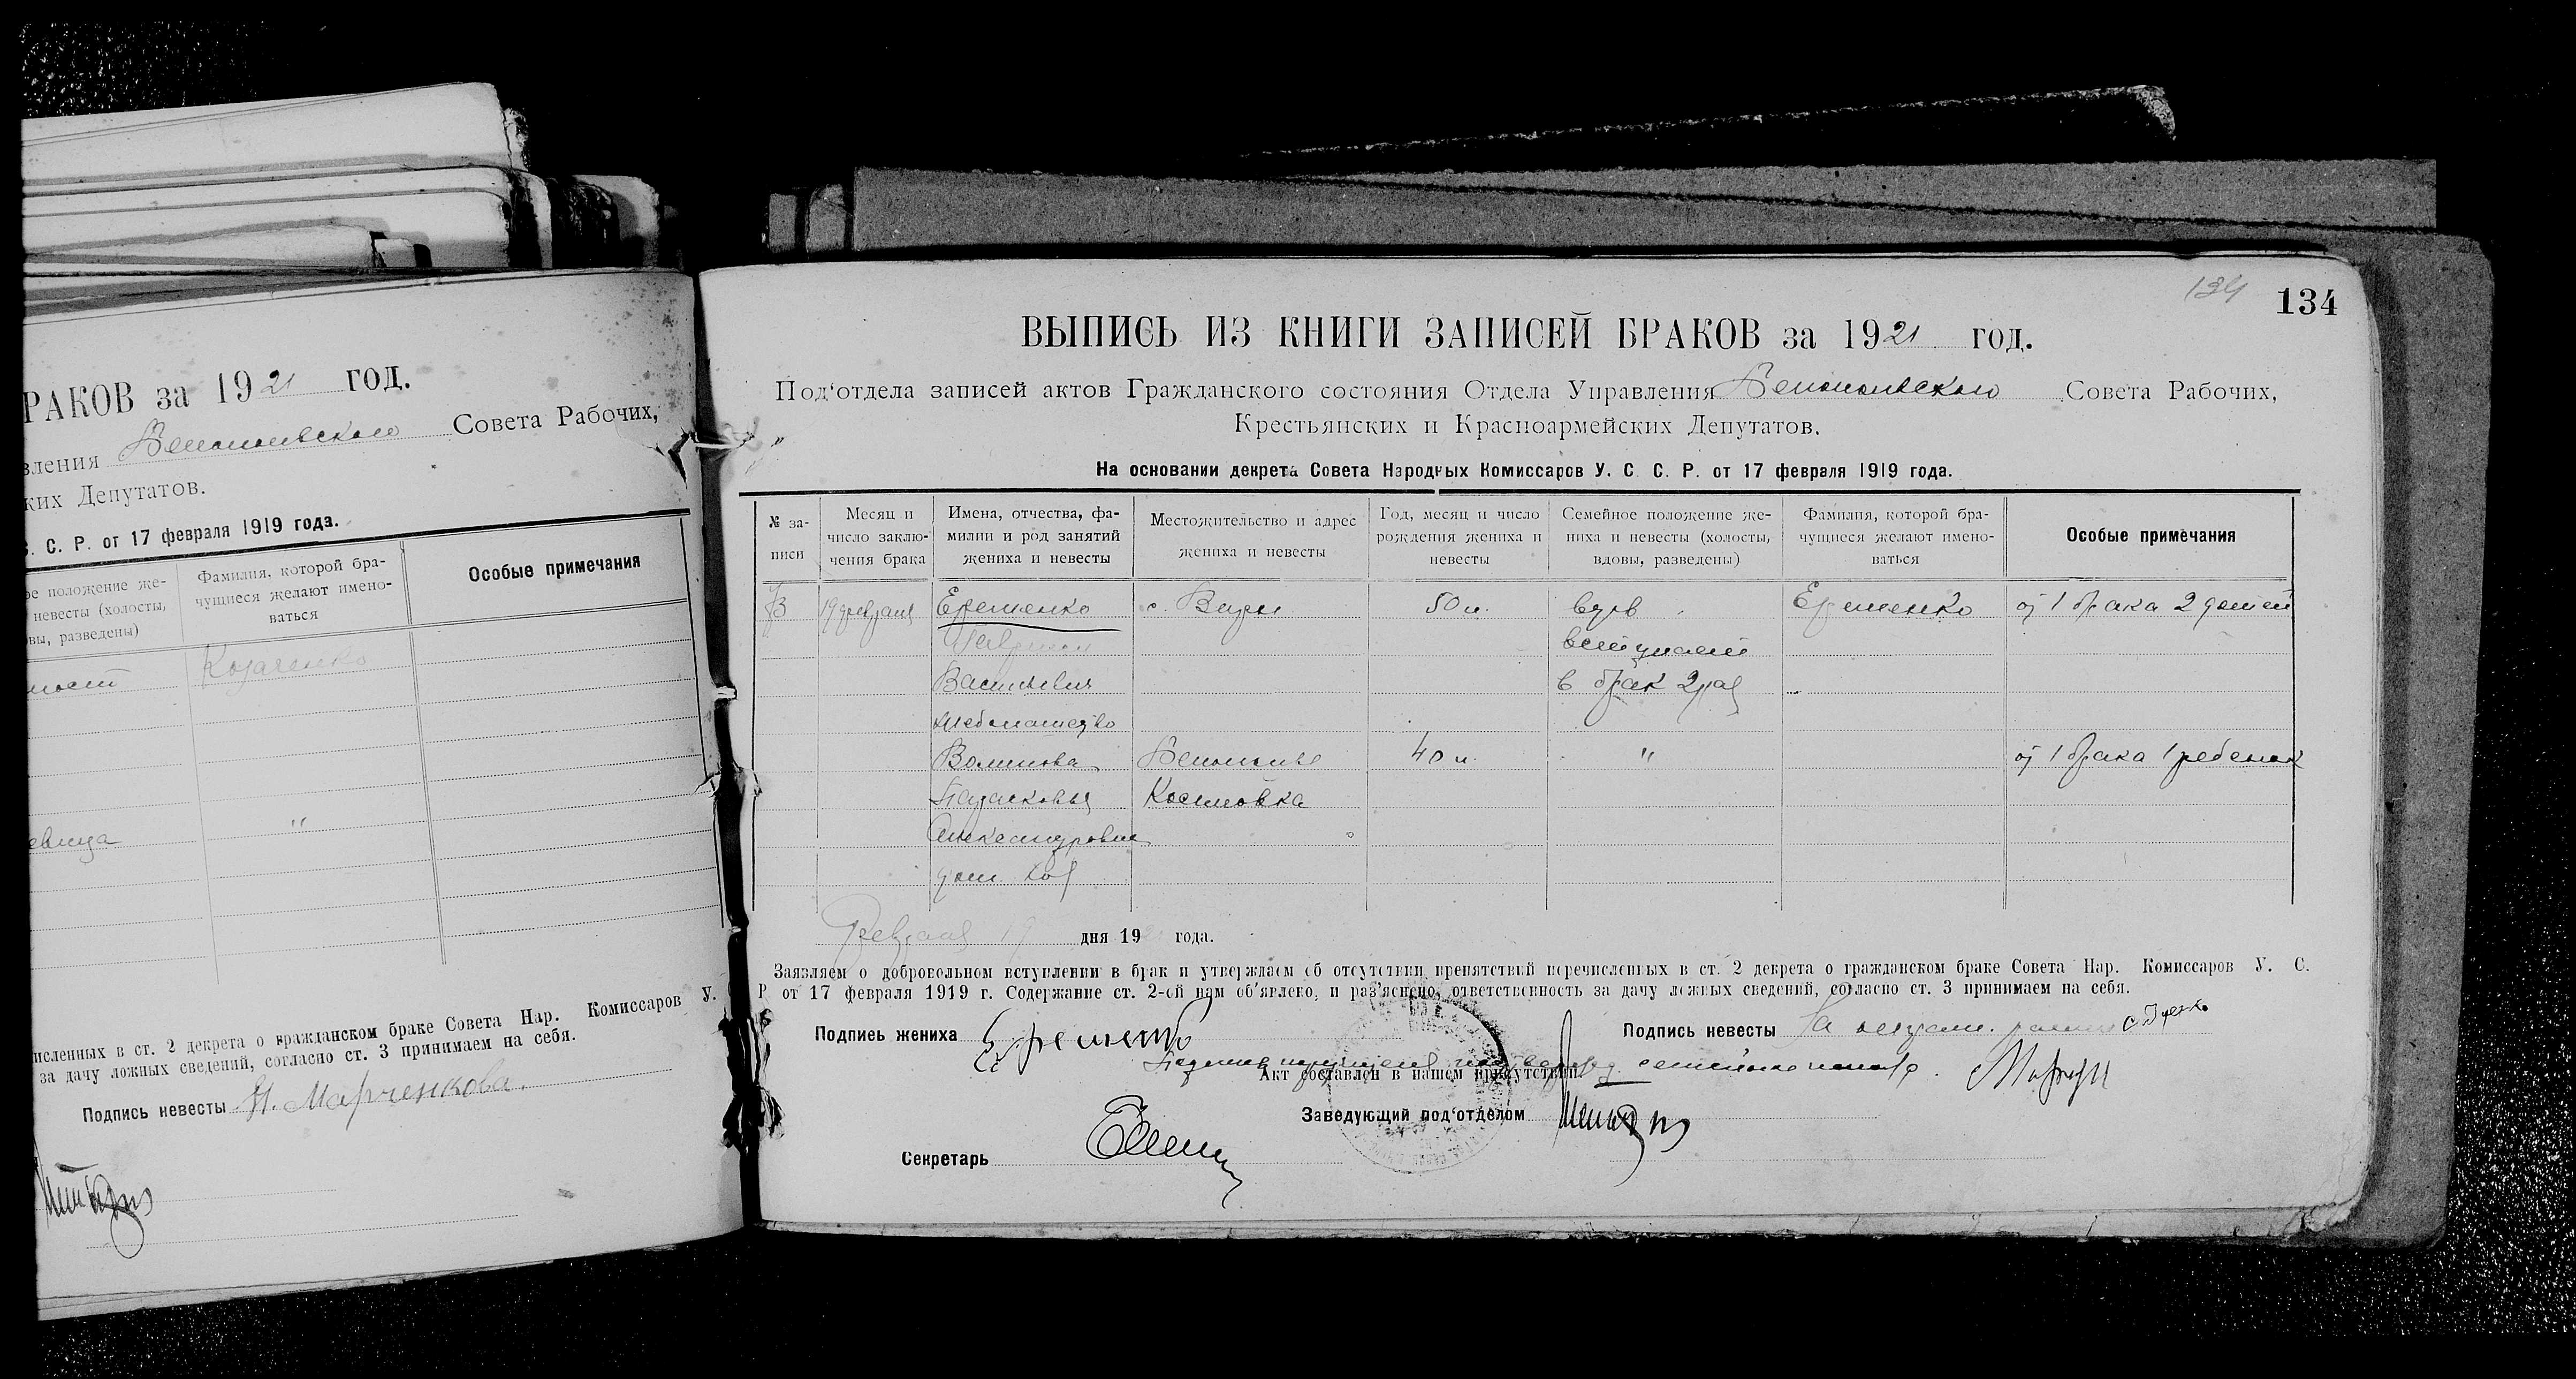 РАКОВ за 1921 год.
вления Белопольского Совета Рабочих,
ких Депутатов.
С. С. Р. от 17 февраля 1919 года.
ое положение же-
невесты (холосты,
вы, разведены)
Фамилия, которой бра-
чущиеся желают имено-
ваться
Особые примечания
Козаченко
"
евица
исленных в ст. 2 декрета о гражданском браке Совета Нар. Комиссаров У.
за дачу ложных сведений, согласно ст. 3 принимаем на себя.
Подпись невесты Н. Марченкова.
134
134
ВЫПИСЬ ИЗ КНИГИ ЗАПИСЕЙ БРАКОВ за 1921 год.
Под'отдела записей актов Гражданского состояния Отдела Управления Белопольского Совета Рабочих,
Крестьянских и Красноармейских Депутатов.
На основании декрета Совета Народных Комиссаров У. С. С. Р. от 17 февраля 1919 года.
№ за-
писи
Месяц и
число заклю-
чения брака
Имена, отчества, фа-
милии и род занятий
жениха и невесты
Местожительство и адрес
жениха и невесты
Год, месяц и число
рождения жениха и
невесты
Семейное положение же-
ниха и невесты (холосты,
вдовы, разведены)
Фамилия, которой бра-
чущиеся желают имено-
ваться
Особые примечания
19 февраля Еременко с. Виры 50 л. вдов Еременко от 1 брака 2 детей
вступает
Васильевич в брак 2 раз
хлебопашество
Воликова Белополье 40 л. " от 1 брака 1 ребенок
Парасковья Костовка
Александровна
дом. хоз
Февраля 19 дня 19 года.
Заявляем о добровольном вступлении в брак и утверждаем об отсутствии препятствий перечисленных в ст. 2 декрета о гражданском браке Совета Нар. Комиссаров У. С.
Р. от 17 февраля 1919 г. Содержание ст. 2-ой нам об'явлено, и раз'яснено, ответственность за дачу ложных сведений, согласно ст. 3 принимаем на себя.
Подпись жениха Еременко Подпись невесты За неграм.
Акт составлен в нашем присутствии:
Заведующий под'отделом
Секретарь